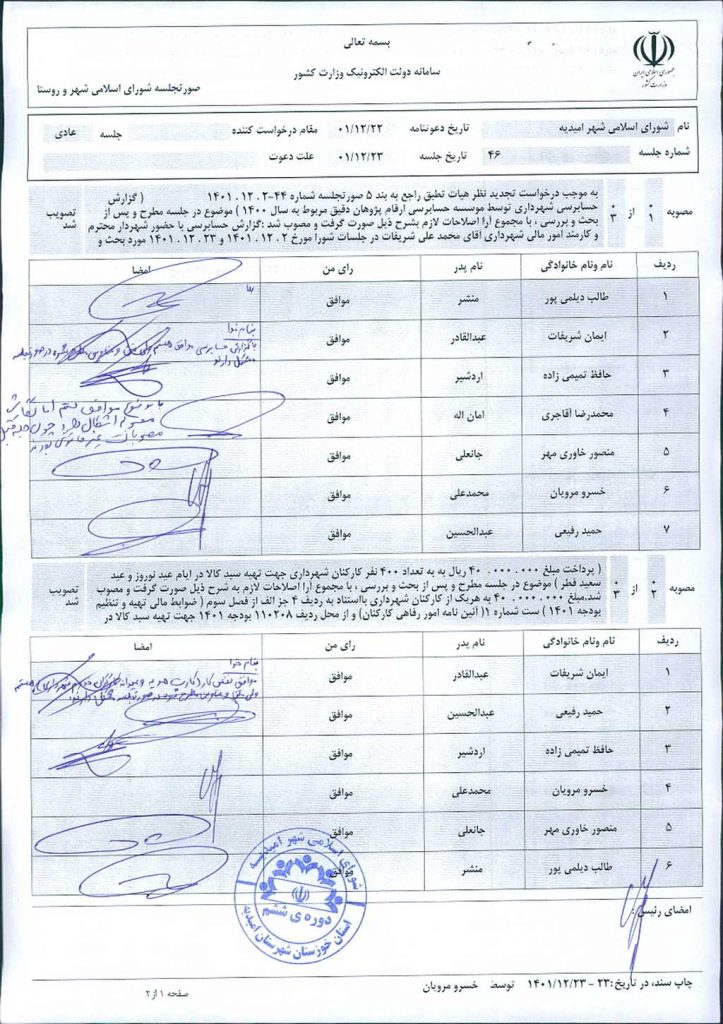 بسمه تعالی
سامانه دولت الکترونیک وزارت کشور
جمهوری اسلامی ایران
وزارت کشور
صورتجلسه شورای اسلامی شهر و روستا
نام شورای اسلامی شهر امیدیه تاریخ دعوتنامه ۰۱/۱۲/۲۲ مقام درخواست کننده جلسه عادی
شماره جلسه ۴۶ تاریخ جلسه ۰۱/۱۲/۲۳ علت دعوت
مصوبه ۰۱ از ۰۳
به موجب درخواست تجدید نظر هیات تطبق راجع به بند ۵ صورتجلسه شماره ۴۴-۱۴۰۱.۱۲.۲ ( گزارش
حسابرسی شهرداری توسط موسسه حسابرسی ارقام پژوهان دقیق مربوط به سال ۱۴۰۰ ) موضوع در جلسه مطرح و پس از
بحث و بررسی ، با مجموع آرا اصلاحات لازم بشرح ذیل صورت گرفت و مصوب شد :گزارش حسابرسی با حضور شهردار محترم
و کارمند امور مالی شهرداری اقای محمد علی شریفات در جلسات شورا مورخ ۱۴۰۱.۱۲.۲ و ۱۴۰۱.۱۲.۲۳ مورد بحث و
تصویب شد
ردیف نام ونام خانوادگی نام پدر رای من امضا
۱ طالب دیلمی پور منتشر موافق
۲ ایمان شریفات عبدالقادر موافق
۳ حافظ تمیمی زاده اردشیر موافق
۴ محمدرضا آقاجری امان اله موافق
۵ منصور خاوری مهر جانعلی موافق
۶ خسرو مرویان محمدعلی موافق
۷ حمید رفیعی عبدالحسین موافق
بنام خدا
مصوبه ۰۲ از ۰۳
( پرداخت مبلغ ۴۰.۰۰۰.۰۰۰ ریال به به تعداد ۴۰۰ نفر کارکنان شهرداری جهت تهیه سبد کالا در ایام عید نوروز و عید
سعید فطر ) موضوع در جلسه مطرح و پس از بحث و بررسی ، با مجموع آرا اصلاحات لازم به شرح ذیل صورت گرفت و مصوب
شد.مبلغ ۴۰.۰۰۰.۰۰۰ به هریک از کارکنان شهرداری بااستناد به ردیف ۴ جز الف از فصل سوم ( ضوابط مالی تهیه و تنظیم
بودجه ۱۴۰۱ ) ست شماره ۱( آئین نامه امور رفاهی کارکنان) و از محل ردیف ۱۱۰۲۰۸ بودجه ۱۴۰۱ جهت تهیه سبد کالا در
تصویب شد
ردیف نام ونام خانوادگی نام پدر رای من امضا
۱ ایمان شریفات عبدالقادر موافق
۲ حمید رفیعی عبدالحسین موافق
۳ حافظ تمیمی زاده اردشیر موافق
۴ خسرو مرویان محمدعلی موافق
۵ منصور خاوری مهر جانعلی موافق
۶ طالب دیلمی پور منتشر موافق
بنام خدا
شورای اسلامی شهر امیدیه
دوره ی ششم
استان خوزستان شهرستان امیدیه
امضای رئیس :
چاپ سند، در تاریخ:۲۳ - ۱۴۰۱/۱۲/۲۳ توسط خسرو مرویان
صفحه ۱ از ۲